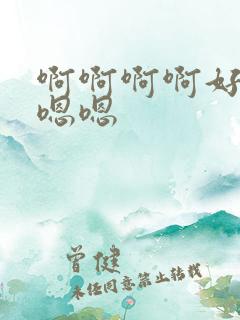 啊啊啊啊好
嗯嗯
曾健
未经同意禁止转载